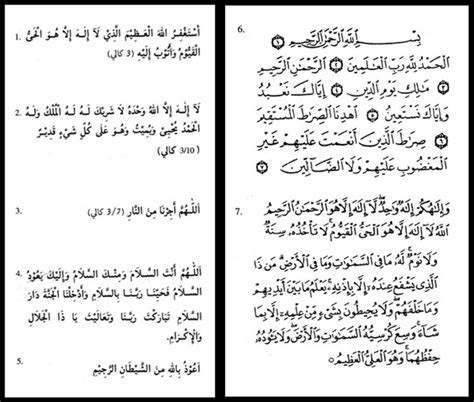 1. أَسْتَغْفِرُ اللهَ الْعَظِيْمَ الَّذِيْ لَآ إِلَهَ إِلَّا هُوَ الْحَيُّ
الْقَيُّوْمُ وَأَتُوْبُ إِلَيْهِ (3 كالي)
2. لَآ إِلَهَ إِلَّا اللهُ وَحْدَهُ لَا شَرِيْكَ لَهُ لَهُ الْمُلْكُ وَلَهُ
الْحَمْدُ يُحْيِيْ وَيُمِيْتُ وَهُوَ عَلَى كُلِّ شَيْءٍ قَدِيْرٌ
(3/10 كالي)
3. اَللّٰهُمَّ أَجِرْنَا مِنَ النَّارِ (3/7 كالي)
4. اَللّٰهُمَّ أَنْتَ السَّلَامُ وَمِنْكَ السَّلَامُ وَإِلَيْكَ يَعُوْدُ
السَّلَامُ فَحَيِّنَا رَبَّنَا بِالسَّلَامِ وَأَدْخِلْنَا الْجَنَّةَ دَارَ
السَّلَامِ تَبَارَكْتَ رَبَّنَا وَتَعَالَيْتَ يَا ذَا الْجَلَالِ
وَالْإِكْرَامِ.
5. أَعُوْذُ بِاللهِ مِنَ الشَّيْطَانِ الرَّجِيْمِ
6. بِسْمِ اللَّهِ الرَّحْمَٰنِ الرَّحِيمِ ۝١
الْحَمْدُ لِلَّهِ رَبِّ الْعَالَمِينَ ۝٢ الرَّحْمَٰنِ الرَّحِيمِ
۝٣ مَالِكِ يَوْمِ الدِّينِ ۝٤ إِيَّاكَ نَعْبُدُ
وَإِيَّاكَ نَسْتَعِينُ ۝٥ اهْدِنَا الصِّرَاطَ الْمُسْتَقِيمَ
۝٦ صِرَاطَ الَّذِينَ أَنْعَمْتَ عَلَيْهِمْ غَيْرِ
الْمَغْضُوبِ عَلَيْهِمْ وَلَا الضَّالِّينَ ۝٧
7. وَإِلَٰهُكُمْ إِلَٰهٌ وَاحِدٌ لَّا إِلَٰهَ إِلَّا هُوَ الرَّحْمَٰنُ الرَّحِيمُ
اللَّهُ لَا إِلَٰهَ إِلَّا هُوَ الْحَيُّ الْقَيُّومُ لَا تَأْخُذُهُ سِنَةٌ
وَلَا نَوْمٌ لَّهُ مَا فِي السَّمَاوَاتِ وَمَا فِي الْأَرْضِ مَن ذَا
الَّذِي يَشْفَعُ عِندَهُ إِلَّا بِإِذْنِهِ يَعْلَمُ مَا بَيْنَ أَيْدِيهِمْ
وَمَا خَلْفَهُمْ وَلَا يُحِيطُونَ بِشَيْءٍ مِّنْ عِلْمِهِ إِلَّا بِمَا
شَاءَ وَسِعَ كُرْسِيُّهُ السَّمَاوَاتِ وَالْأَرْضَ وَلَا يَئُودُهُ
حِفْظُهُمَا وَهُوَ الْعَلِيُّ الْعَظِيمُ